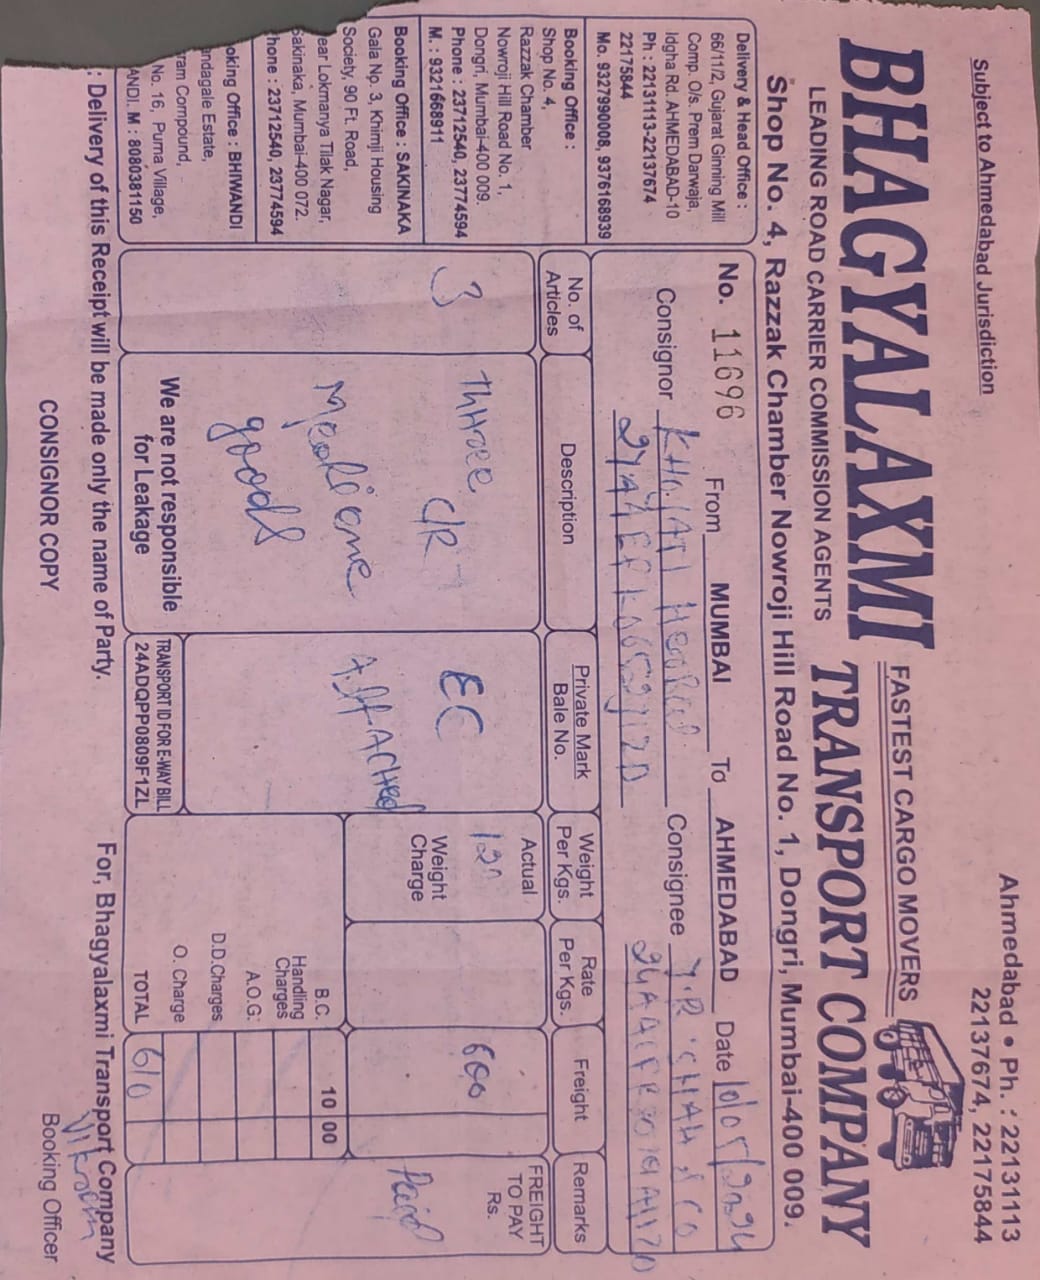 Subject to Ahmedabad Jurisdiction
Ahmedabad • Ph. : 22131113
22137674, 22175844
BHAGYALAXMI TRANSPORT COMPANY
FASTEST CARGO MOVERS
LEADING ROAD CARRIER COMMISSION AGENTS
Shop No. 4, Razzak Chamber Nowroji Hill Road No. 1, Dongri, Mumbai-400 009.
Delivery & Head Office :
66/11/2, Gujarat Ginning Mill
Comp. O/s. Prem Darwaja,
Idgha Rd. AHMEDABAD-10
Ph : 22131113-22137674
22175844
Mo. 9327990008, 9376168939
Booking Office :
Shop No. 4,
Razzak Chamber
Nowroji Hill Road No. 1,
Dongri, Mumbai-400 009.
Phone : 23712540, 23774594
M. : 9321668911
Booking Office : SAKINAKA
Gala Np. 3, Khimji Housing
Society, 90 Ft. Road,
ear Lokmanya Tilak Nagar,
Sakinaka, Mumbai-400 072.
hone : 23712540, 23774594
oking Office : BHIWANDI
andagale Estate,
ram Compound,
No. 16, Purna Village,
ANDI. M : 8080381150
No. 11696 From MUMBAI To AHMEDABAD Date
Consignor Consignee
No. of Articles
Description
Private Mark
Bale No.
Weight Per Kgs.
Rate Per Kgs.
Freight
Remarks
3
Three
C/R
goods
We are not responsible
for Leakage
EC
Attached
TRANSPORT ID FOR E-WAY BILL
24ADQPP0809F1ZL
Actual
Weight Charge
600
FREIGHT
TO PAY
Rs.
Paid
B.C. 10 00
Handling Charges
A.O.G.
D.D.Charges
O. Charge
TOTAL 610
: Delivery of this Receipt will be made only the name of Party.
For, Bhagyalaxmi Transport Company
CONSIGNOR COPY
Booking Officer